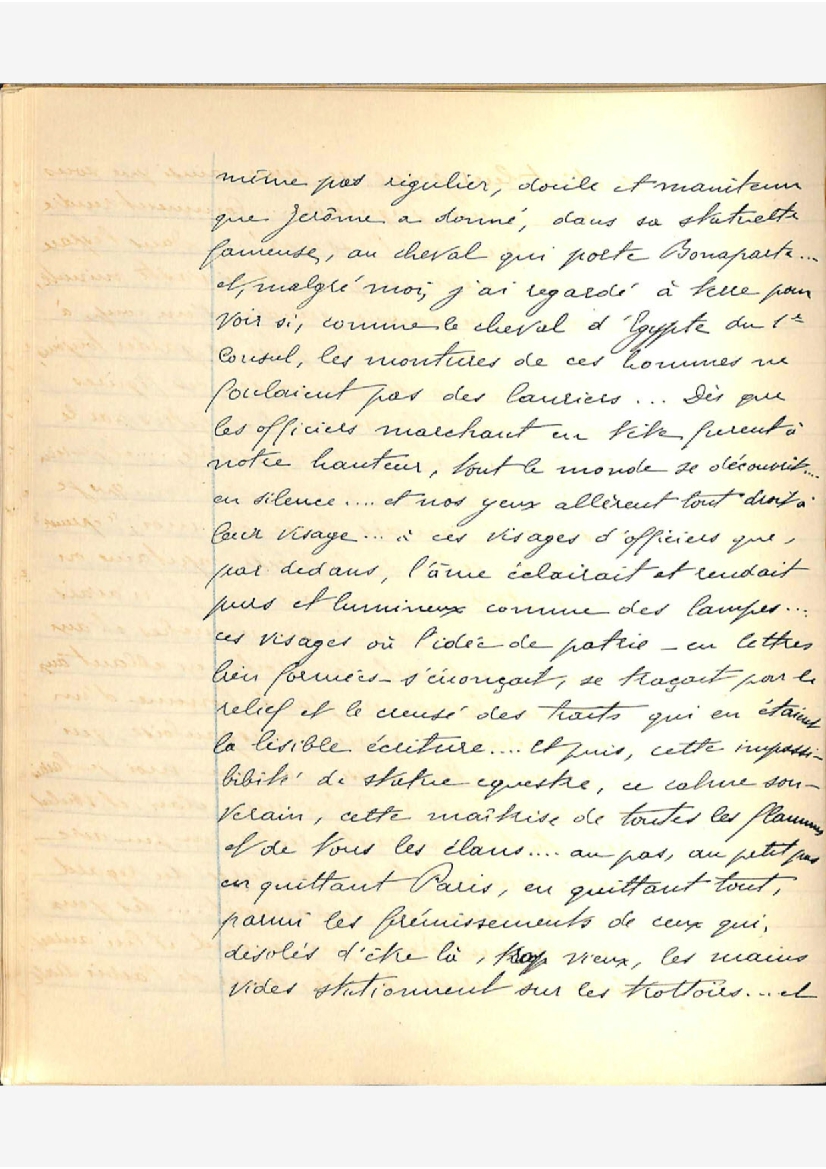 même pas régulier, docile et maintenu
que Jérôme a donné, dans sa statuette
fameuse, au cheval qui porte Bonaparte...
et, malgré moi, j'ai regardé à terre pour
voir si, comme le cheval d'Egypte du 1er
Consul, les montures de ces hommes ne
foulaient pas des lauriers... Dès que
les officiers marchant en tête furent à
notre hauteur, tout le monde se découvrit...
en silence.... et nos yeux allèrent tout droit à
leur visage... à ces visages d'officiers que,
par dedans, l'âme éclairait et rendait
purs et lumineux comme des lampes...
ces visages où l'idée de patrie - en lettres
bien formées - s'énonçait, se traçait par le
relief et le creusé des traits qui en étaient
la lisible écriture.... Et puis, cette impassi-
bibité de statue equestre, ce calme sou-
verain, cette maîtrise de toutes les flammes
et de tous les élans.... au pas, au petit pas
en quittant Paris, en quittant tout,
parmi les frémissements de ceux qui,
désolés d'être là, trop vieux, les mains
vides stationnent sur les trottoirs... et